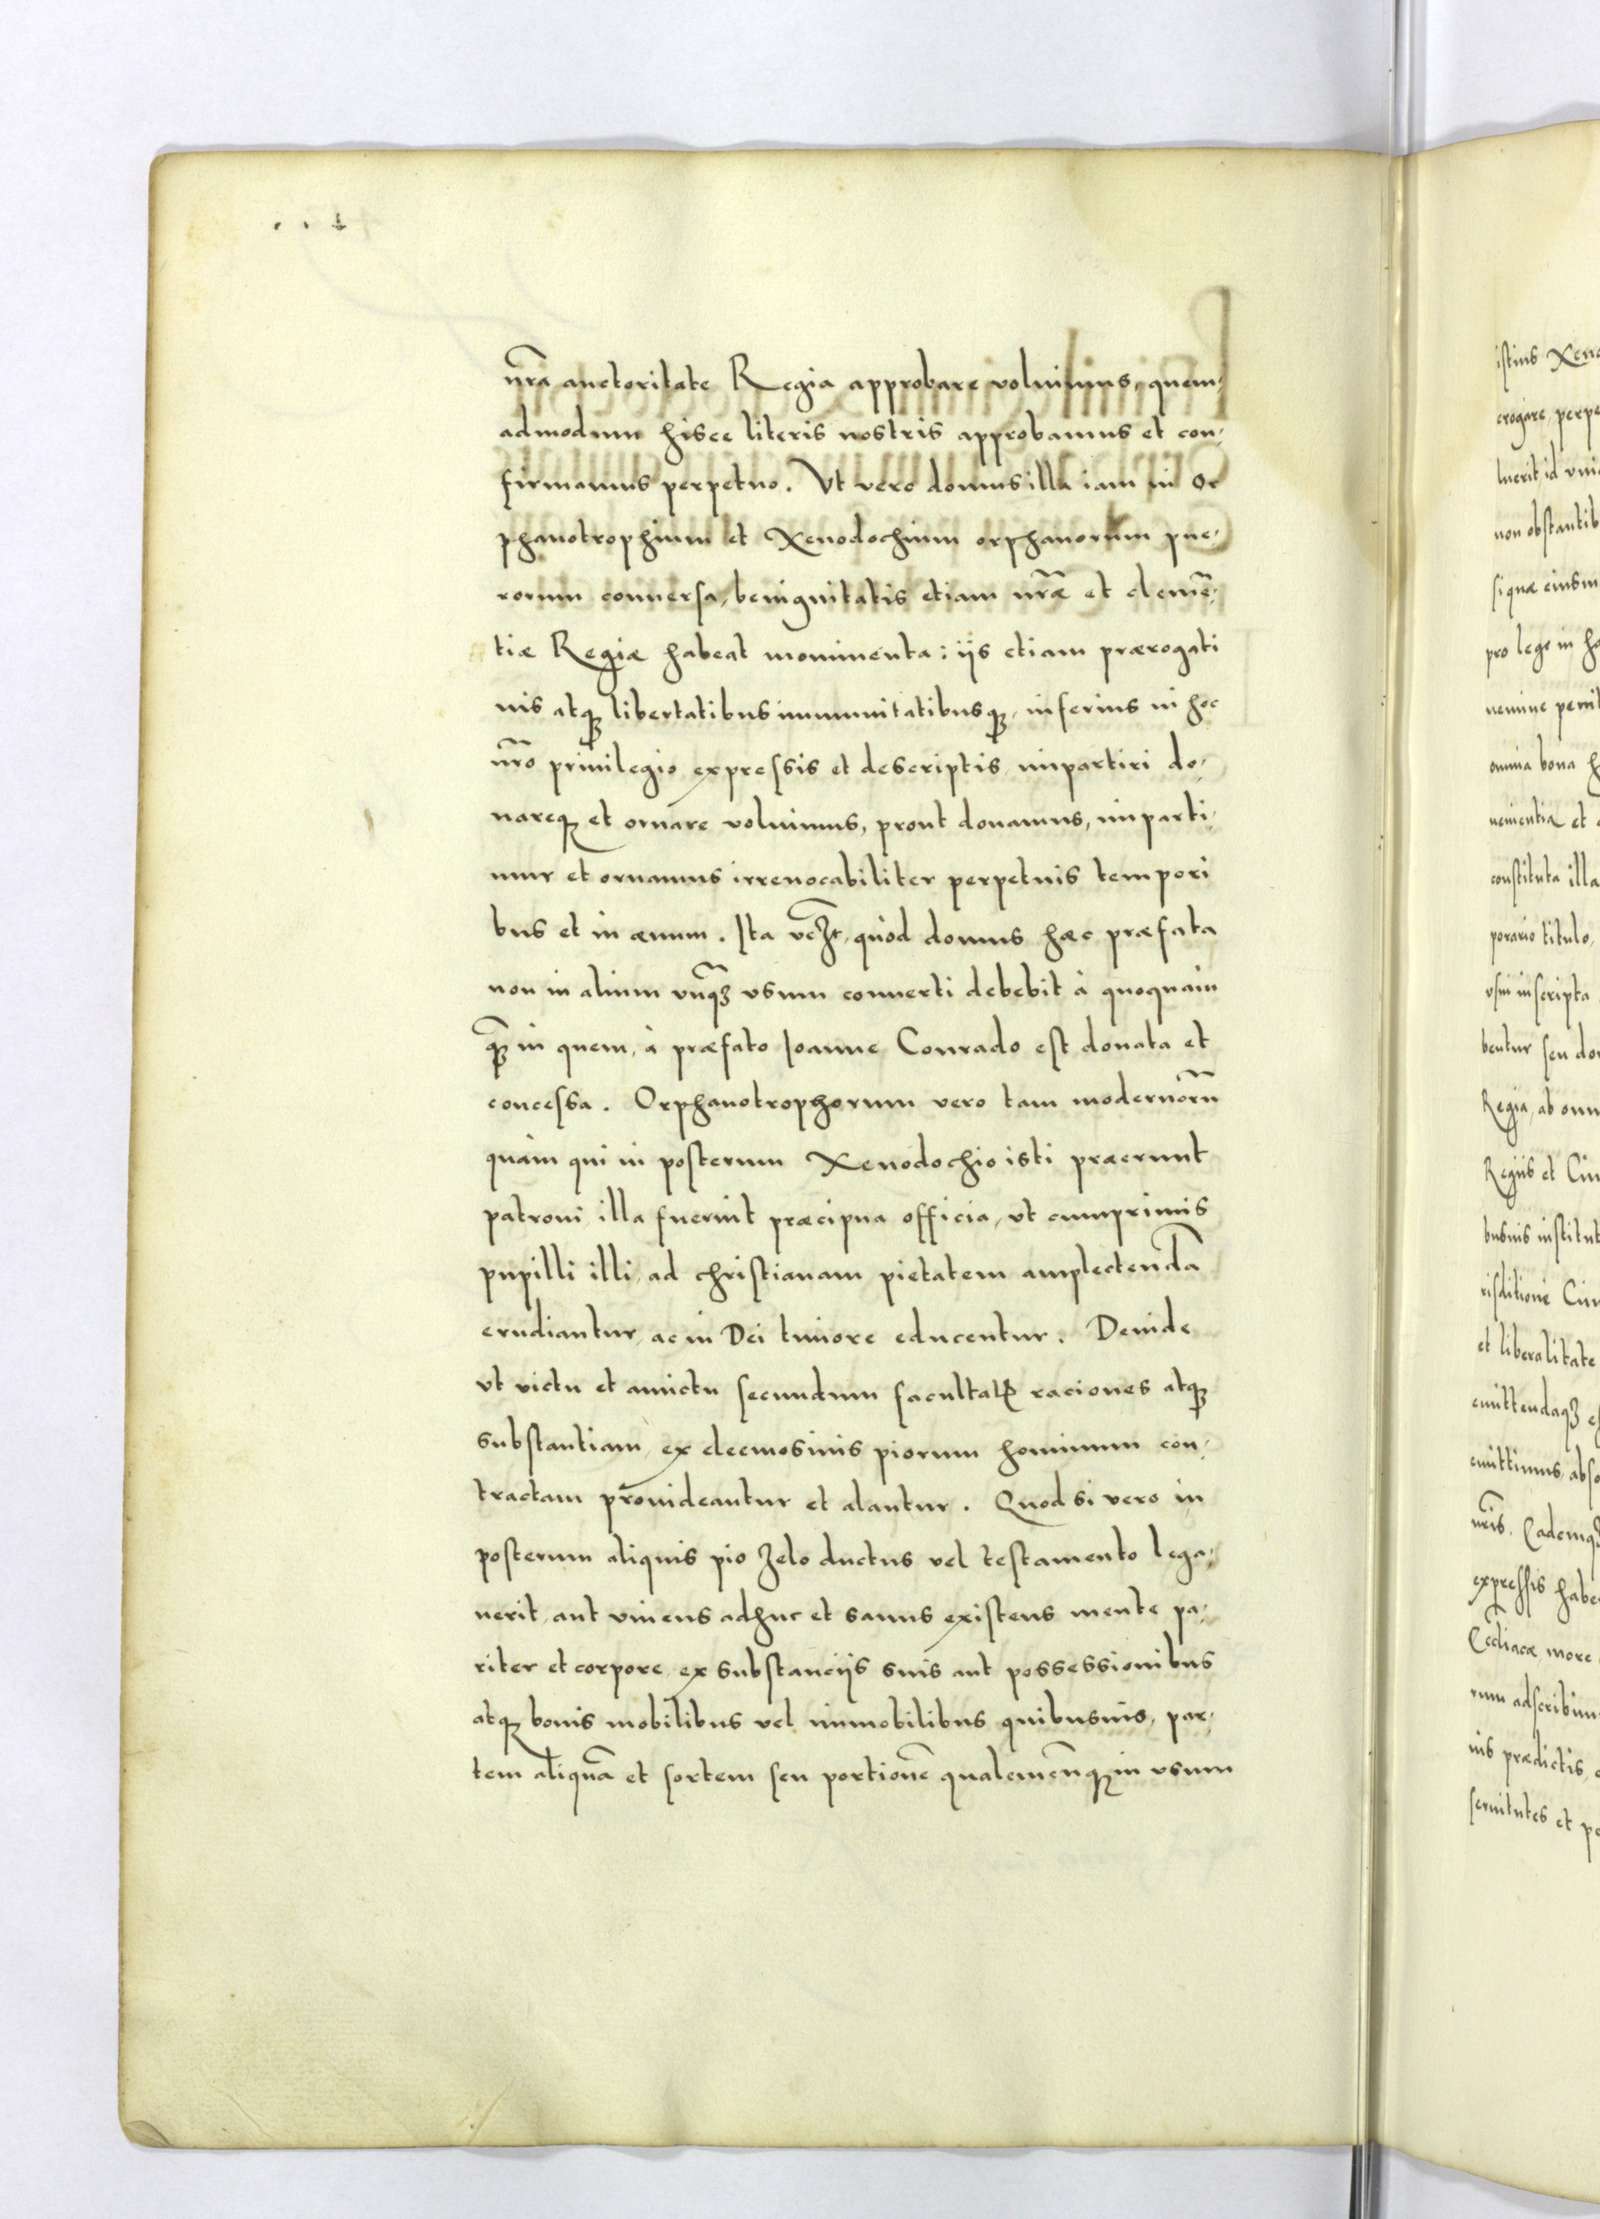 nr̃a auctoritate Regia approbare voluimus, quem-
admodum hisce literis nostris approbamus et con-
firmamus perpetuo. Vt vero domus illa iam in Or
phanotrophium et Xenodochium orphanorum pue-
rorum conuersa, benignitatis etiam nr̃æ et clemẽ-
tiæ Regiæ habeat monimenta: iis etiam prærogati
uis atqꝫ libertatibus immunitatibusqꝫ, inferius in hoc
nr̃o priuilegio expressis et descriptis impartiri do-
nareqꝫ et ornare voluimus, prout donamus, imparti-
mur et ornamus irreuocabiliter perpetuis tempori
bus et in æuum. Ita vczt, quòd domus hæc præfata
non in alium vnq̃ꝫ vsum conuerti debebit à quoquam
q̃ꝫ in quem, à præfato Ioanne Conrado est donata et
concessa. Orphanotrophorum vero tam modernorũ
quàm qui in posterum Xenodochio isti præerunt
patroni illa fuerint præcipua officia, vt cumprimis
pupilli illi, ad christianam pietatem amplectendã
erudiantur, ac in Dei timore educentur. Deinde
vt victu et amictu secundum facultatꝝ raciones atqꝫ
substantiam, ex eleemosinis piorum hominum con-
tractam prouideantur et alantur. Quod si vero in
posterum aliquis pio zelo ductus vel testamento lega-
uerit, aut viuens adhuc et sanus existens mente pa-
riter et corpore, ex substanciis suis aut possessionibus
atqꝫ bonis mobilibus vel immobilibus quibusuis, par-
tem aliquã et sortem seu portionẽ qualemcũqꝫ in vsum
istius
erogare, 
luerit, id
non
si quæ
pro lege in
nemine
omnia bona
uenientia et
constituta illa
porario titulo,
vsui inscripta
bentur seu
Regia, ab
Regiis et
busuis
risditione
et liberalitate
emittendaqꝫ
emittimus,
nr̃is. Eademqꝫ
expressis
more
rum
uis prædictis,
seruitutes et